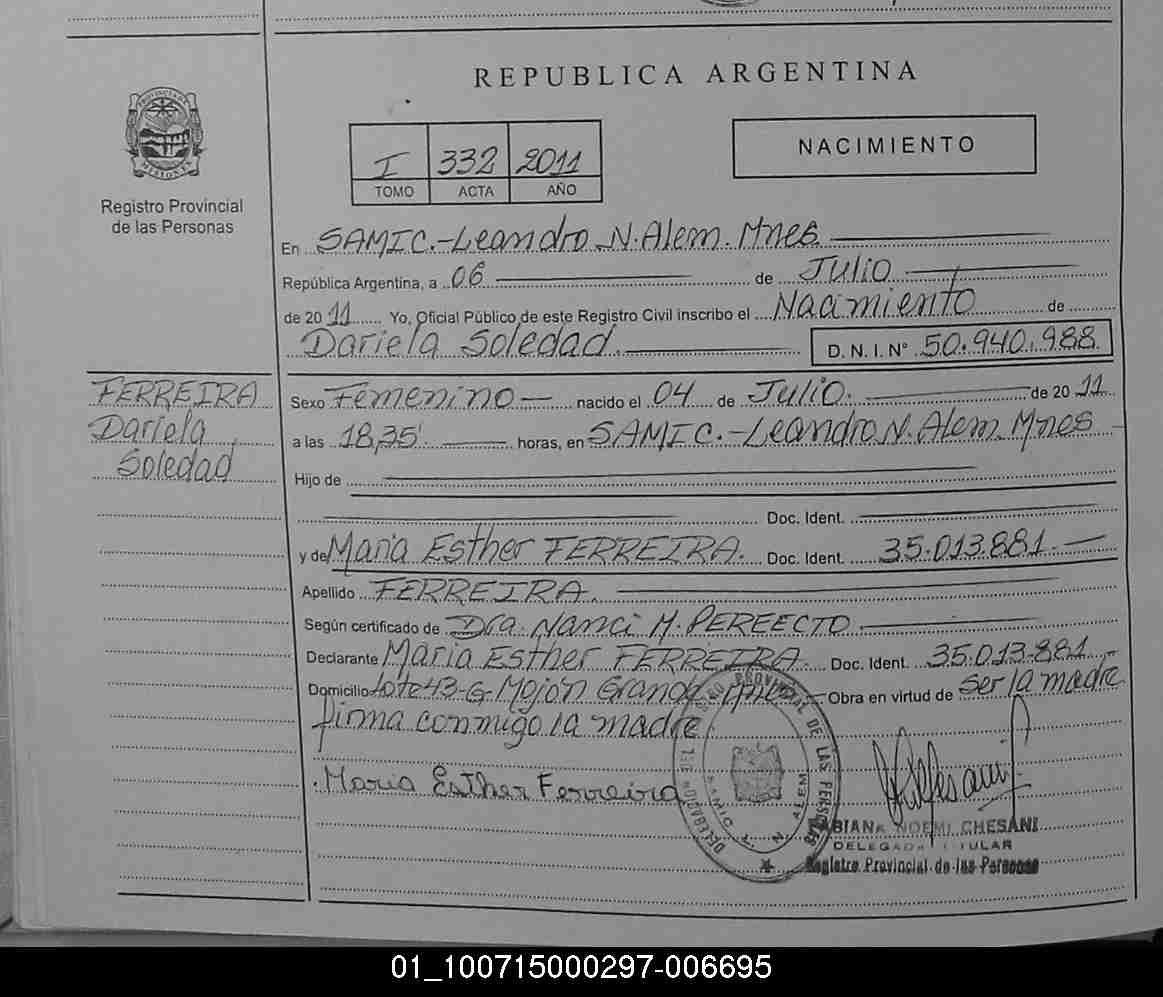 REPUBLICA ARGENTINA
PROVINCIA DE MISIONES
Registro Provincial
de las Personas
I 332 2011
TOMO ACTA AÑO
NACIMIENTO
En SAMIC.-Leandro N. Alem. Mnes.
República Argentina, a 06 de Julio
de 2011 Yo, Oficial Público de este Registro Civil inscribo el Nacimiento de
Dariela Soledad. D.N.I.Nº 50.940.988
FERREIRA
Dariela
Soledad
Sexo Femenino nacido el 04 de Julio. de 2011
a las 18,35' horas, en SAMIC.-Leandro N. Alem. Mnes
Hijo de
Doc. Ident.
y de Maria Esther FERREIRA. Doc. Ident. 35.013.881.
Apellido FERREIRA.
Según certificado de Dra. Nanci M. PEREECTO
Declarante Maria Esther FERREIRA. Doc. Ident. 35.013.881
Domicilio Lote 43-G-Mojón Grande Obra en virtud de ser la madre
firma conmigo la madre
Maria Esther Ferreira
REGISTRO PROVINCIAL DE LAS PERSONAS
N. ALEM
FABIANA NOEMI CHESANI
DELEGADA TITULAR
Registro Provincial de las Personas
01_100715000297-006695